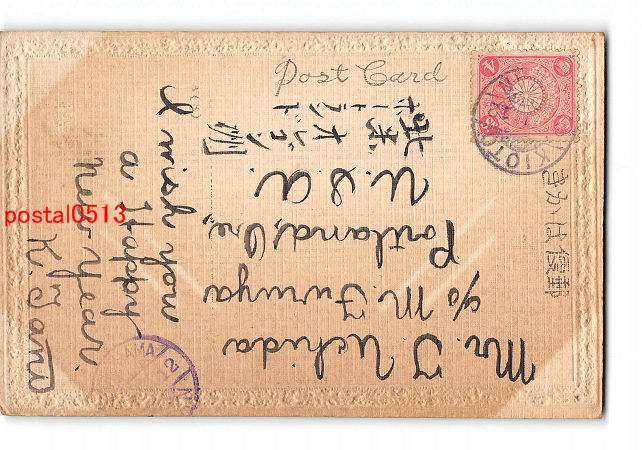 Post Card
郵便はがき
4
KIOTO
Mr. T. Uchida
c/o M. Furuya
Portland, Ore,
U. S. A.
北米
オレゴン州
ポートランド
I wish you
a Happy
new year
K. Tano
postal0513